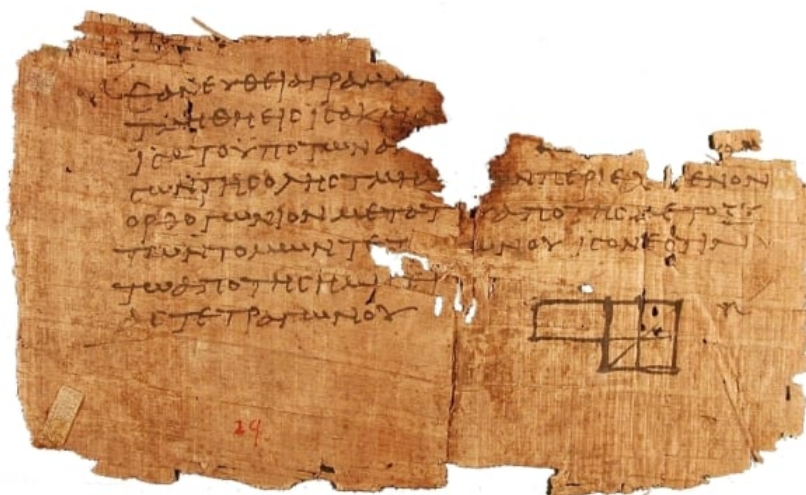 ΕΑΝ ΕΥΘΕΙΑ ΓΡΑΜ
ΤΜΗΘΗ ΕΙϹ ΙϹΑ ΚΑΙ Α
ΙϹΑ ΤΟ ΥΠΟ ΤΩΝ Α
ϹΩΝ ΤΗϹ ΟΛΗϹ ΤΜΗΜ Ν ΠΕΡΙΕΧ ΜΕΝΟΝ
ΟΡΘΟΓΩΝΙΟΝ ΜΕΤΑ ΤΟΥ ΑΠΟ ΤΗϹ ΜΕΤΟΞΥ
ΤΩΝ ΤΟΜΩΝ ΤΕΤ ΩΝΟΥ ΙϹΟΝ ΕϹΤΙΝ
ΤΩ ΑΠΟ ΤΗϹ ΗΜΙ
ΑϹ ΤΕΤΡΑΓΩΝΟΥ
29